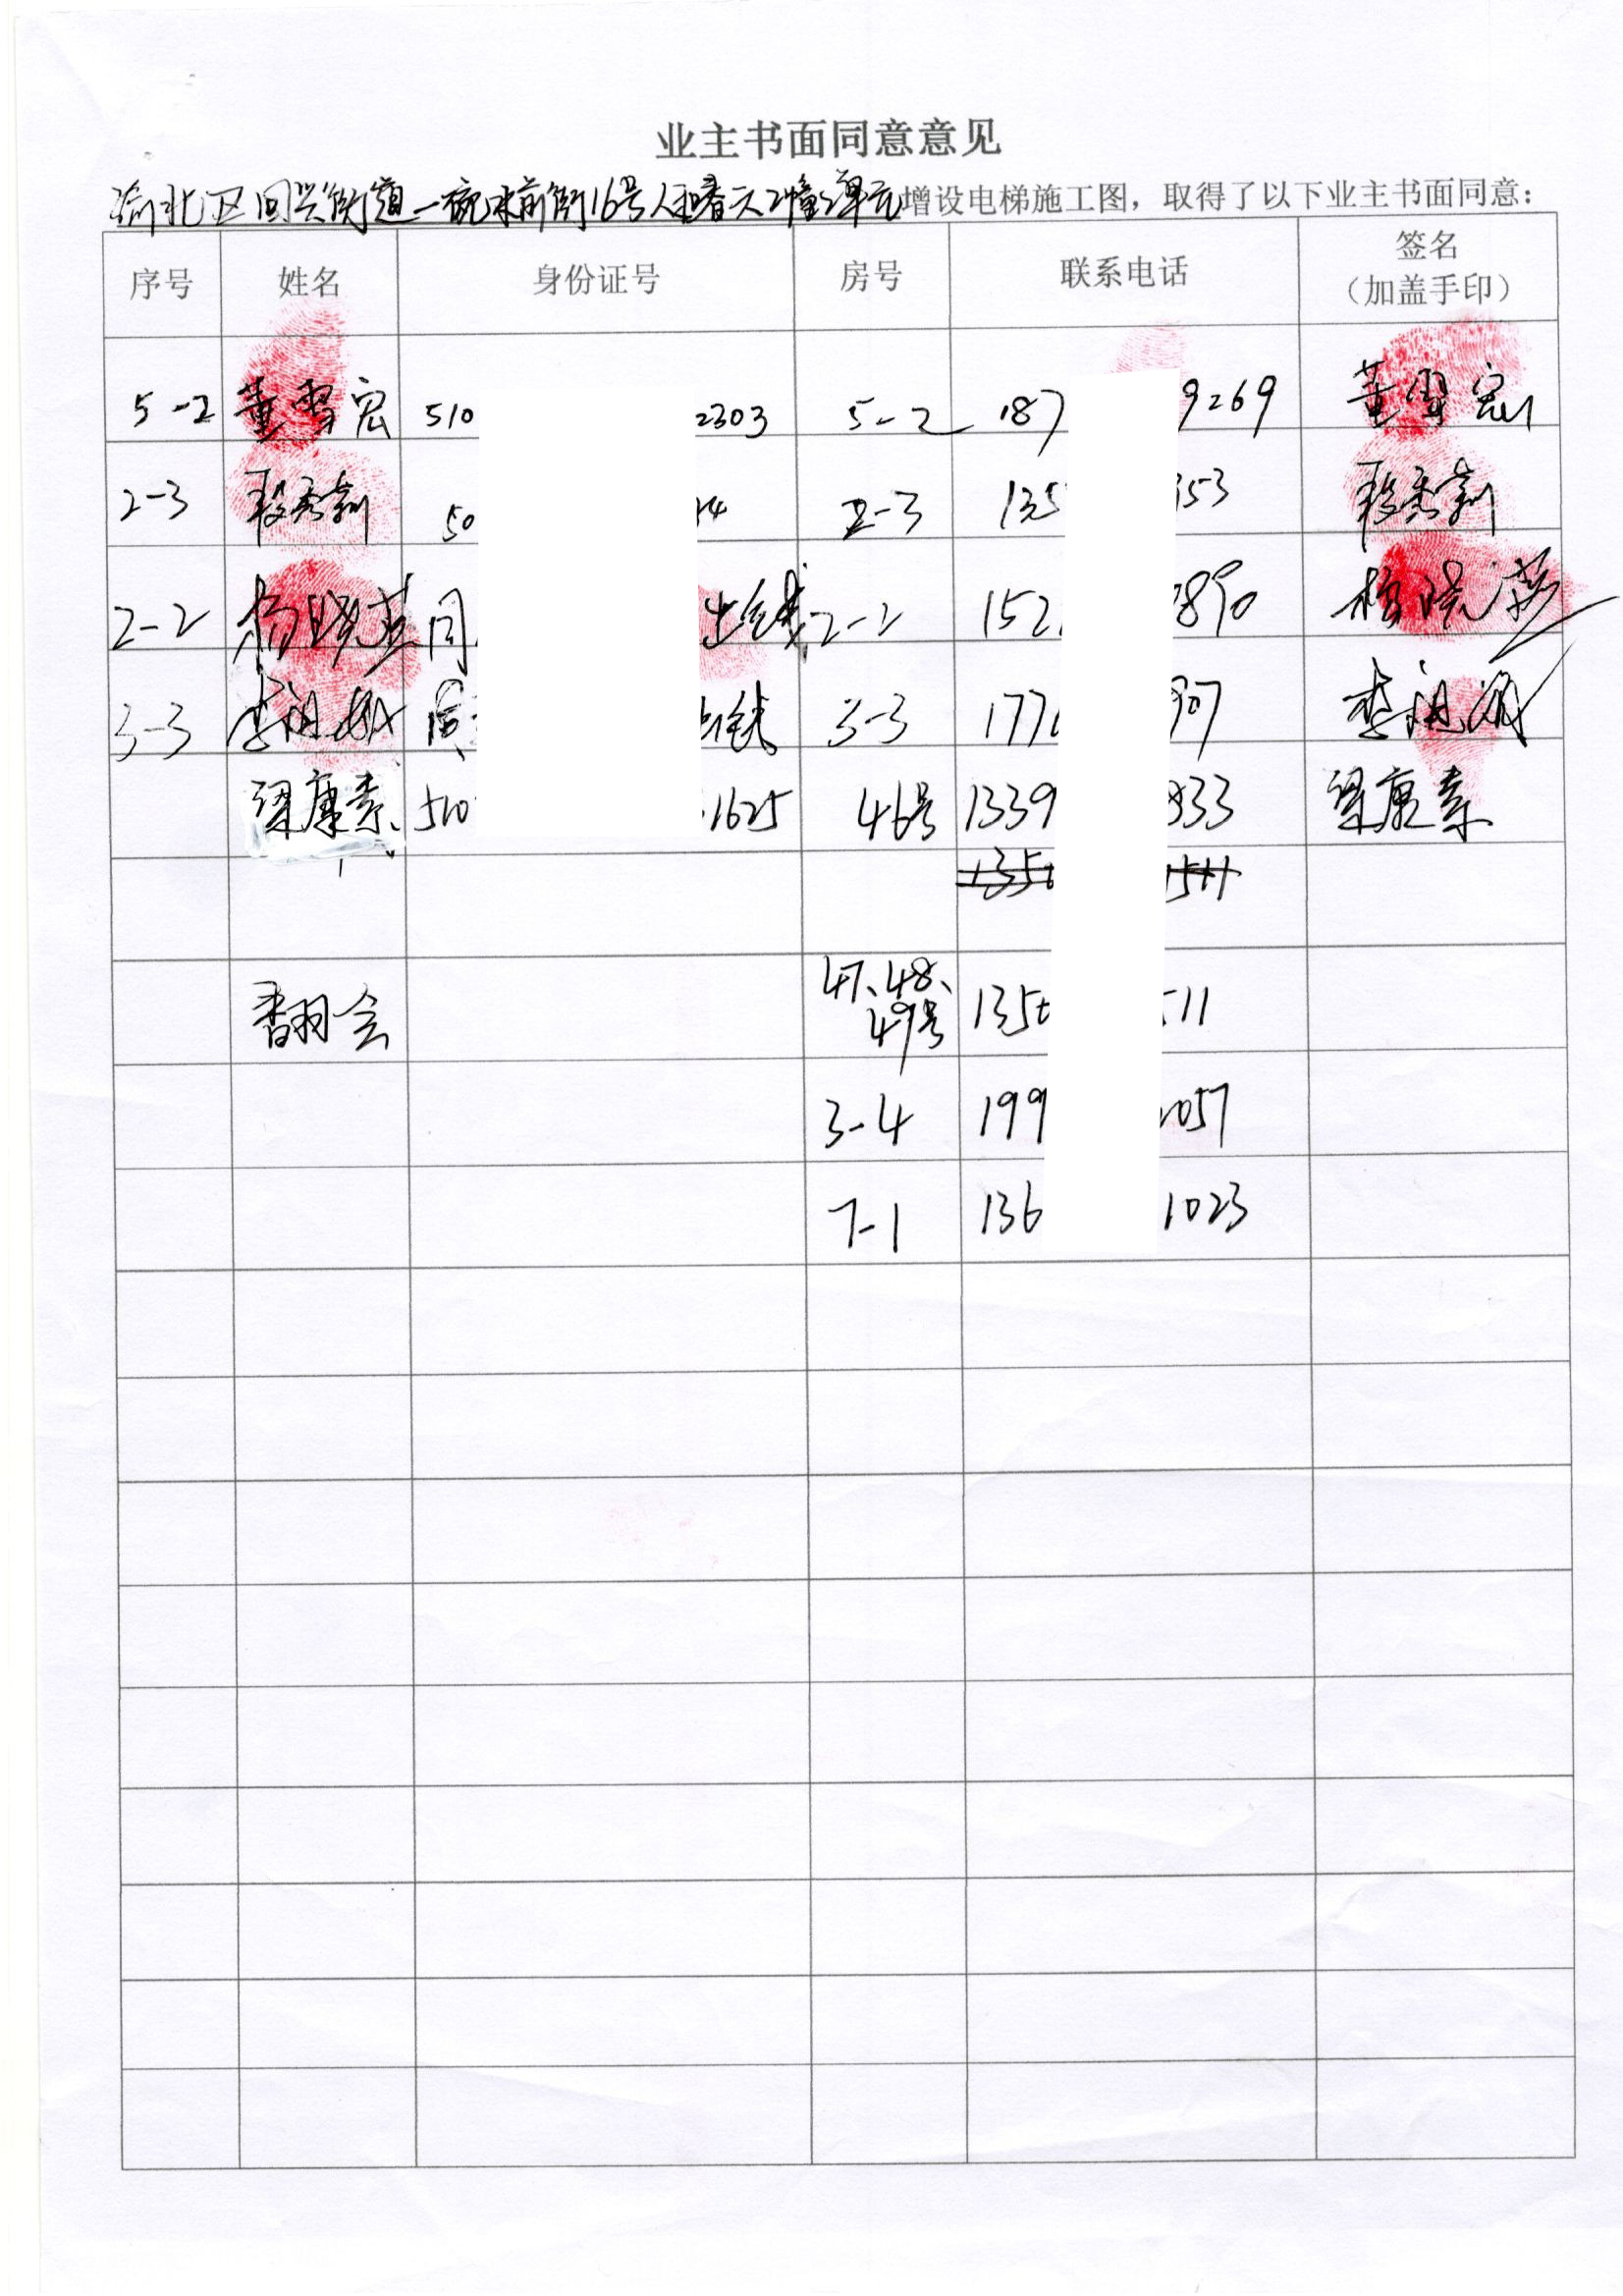 业主书面同意意见
渝北区回兴街道一碗水前街16号人和春天2幢2单元增设电梯施工图，取得了以下业主书面同意：
序号 姓名 身份证号 房号 联系电话 签名
（加盖手印）
5-2 董 宏 510 2303 5-2 187 9269 董 宏
2-3 段秀莉 50 14 2-3 135 353 段秀莉
2-2 杨晓燕 同 出钱 2-2 152 890 杨晓燕
3-3 李 同 出钱 3-3 177 907 李
梁康素 510 1625 46号 1339 333 梁康素
135 1511
翻会 47、48、
49号 135 511
3-4 199 057
7-1 136 1023